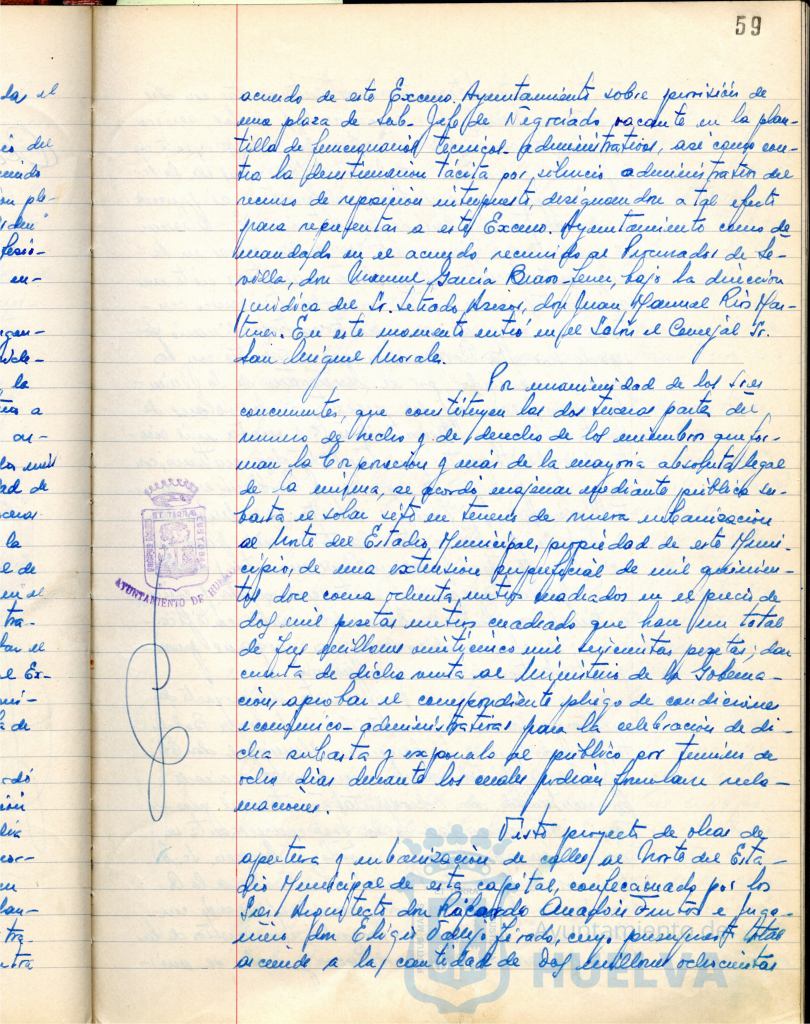 59
acuerdo de este Excmo. Ayuntamiento sobre provisión de
una plaza de Sub-Jefe de Negociado vacante en la plan-
tilla de funcionarios técnicos-administrativos, así como con-
tra la desestimación tácita por silencio administrativo del
recurso de reposición interpuesto, designándose a tal efecto
para representar a este Excmo. Ayuntamiento como de-
mandado en el acuerdo recurrido al Procurador de Se-
villa, don Manuel García Bravo-Ferrer, bajo la dirección
jurídica del Sr. Letrado Asesor, don Juan Manuel Ríos Mar-
tínez. En este momento entró en el Salón el Concejal Sr.
San Miguel Morales.
Por unanimidad de los Sres
concurrentes, que constituyen las dos terceras partes del
número de hecho y de derecho de los miembros que for-
man la Corporación y más de la mayoría absoluta legal
de la misma, se acordó enajenar mediante pública su-
basta el solar sito en terrenos de nueva urbanización
al Norte del Estadio Municipal, propiedad de este Muni-
cipio, de una extensión superficial de mil quinien-
tos doce coma ochenta metros cuadrados en el precio de
dos mil pesetas metro cuadrado que hace un total
de tres millones veinticinco mil seiscientas pesetas; dar
cuenta de dicha venta al Ministerio de la Goberna-
ción, aprobar el correspondiente pliego de condiciones
económico-administrativas para la celebración de di-
cha subasta y exponerlo al público por término de
ocho días durante los cuales podrán formularse recla-
maciones.
Visto proyecto de obras de
apertura y urbanización de calles al Norte del Esta-
dio Municipal de esta capital, confeccionado por los
Sres Arquitecto don Ricardo Anadón Frutos e Inge-
niero don Eligio                     cuyo presupuesto total
asciende a la cantidad de Dos millones ochocientas
AYUNTAMIENTO DE HUELVA
Ayuntamiento de
HUELVA